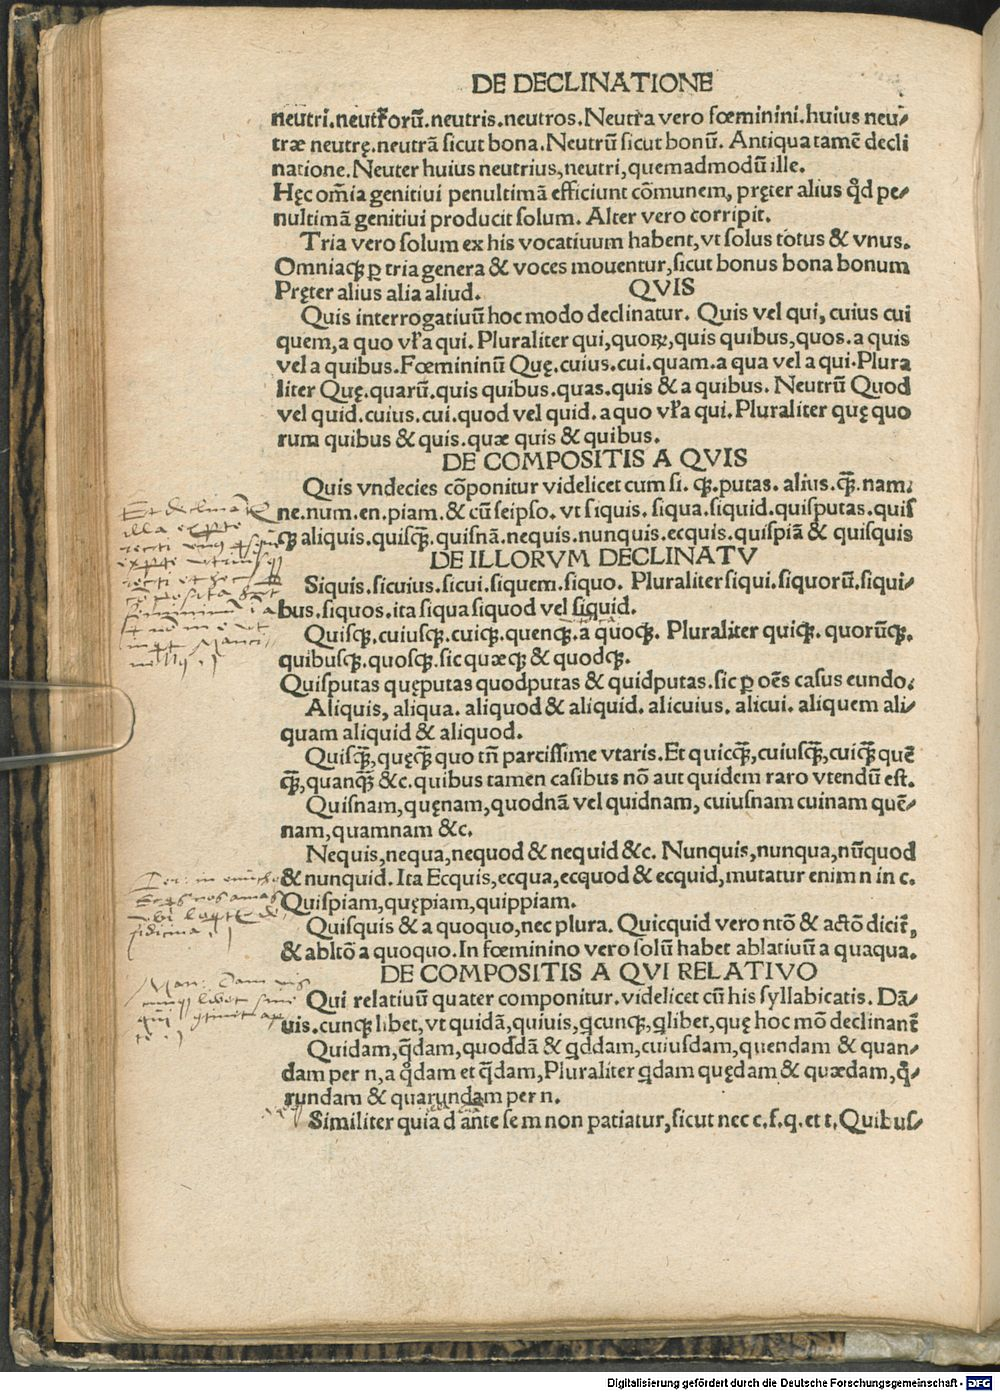 DE DECLINATIONE
neutri.neutrorũ.neutris.neutros.Neutra vero fœminini.huius neu⸗
træ neutrę.neutrã sicut bona.Neutrũ sicut bonũ. Antiqua tamẽ decli
natione.Neuter huius neutrius,neutri,quemadmodũ ille.
Hęc oĩa genitiui penultimã efficiunt cõmunem, pręter alius qd̃ pe⸗
nultimã genitiui producit solum. Alter vero corripit.
Tria vero solum ex his vocatiuum habent,vt solus totus & vnus.
Omniaqꝫ ꝑ tria genera & voces mouentur,sicut bonus bona bonum
Pręter alius alia aliud.
QVIS
Quis interrogatiuũ hoc modo declinatur. Quis vel qui, cuius cui
quem,a quo vl̃ a qui. Pluraliter qui,quoꝝ,quis quibus,quos.a quis
vel a quibus.Fœmininũ Quę.cuius.cui.quam.a qua vel a qui.Plura
liter Quę.quarũ.quis quibus.quas.quis & a quibus. Neutrũ Quod
vel quid.cuius.cui.quod vel quid.a quo vl̃ a qui.Pluraliter quę quo
rum quibus & quis.quæ quis & quibus.
DE COMPOSITIS A QVIS
Quis vndecies cõponitur videlicet cum si. qꝫ.putas. alius.qꝫ̃.nam.
ne.num.en.piam.& cũ seipso.vt siquis.siqua.siquid.quisputas.quis
qꝫ aliquis.quisqꝫ̃.quisnã.nequis.nunquis.ecquis.quispiã & quisquis
DE ILLORVM DECLINATV
Siquis.sicuius.sicui.siquem.siquo. Pluraliter siqui.siquorũ.siqui⸗
bus.siquos.ita siqua siquod vel siquid.
Quisqꝫ.cuiusqꝫ.cuiqꝫ.quenqꝫ.a quoqꝫ. Pluraliter quiqꝫ.quorũqꝫ.
quibusqꝫ.quosqꝫ.sic quæqꝫ & quodqꝫ.
Quisputas quęputas quodputas & quidputas.sic ꝑ oẽs casus eundo.
Aliquis, aliqua. aliquod & aliquid. alicuius. alicui. aliquem ali⸗
quam aliquid & aliquod.
Quisqꝫ̃,quęqꝫ̃ quo tñ parcissime vtaris.Et quicqꝫ̃,cuiusqꝫ̃,cuiqꝫ̃ quẽ
qꝫ̃,quanqꝫ̃ &c.quibus tamen casibus nõ aut quidem raro vtendũ est.
Quisnam,quęnam,quodnã vel quidnam, cuiusnam cuinam quẽ⸗
nam,quamnam &c.
Nequis,nequa,nequod & nequid &c. Nunquis,nunqua,nũquod
& nunquid. Ita Ecquis,ecqua,ecquod & ecquid,mutatur enim n in c.
Quispiam,quępiam,quippiam.
Quisquis & a quoquo,nec plura. Quicquid vero ntõ & actõ dicit̃,
& abltõ a quoquo.In fœminino vero solũ habet ablatiuũ a quaqua.
DE COMPOSITIS A QVI RELATIVO
Qui relatiuũ quater componitur.videlicet cũ his syllabicatis. Dã⸗
uis.cunqꝫ libet,vt quidã,quiuis,qcunqꝫ,qlibet,quę hoc mõ declinant̃
Quidam,q̃dam,quoddã & qddam,cuiusdam,quendam & quan⸗
dam per n,a qdam et q̃dam,Pluraliter qdam quędam & quædam,q⸗
rundam & quarundam per n.
Similiter quia d ante se m non patiatur,sicut nec c.s.q.et t.Quibus⸗
Digitalisierung gefördert durch die Deutsche Forschungsgemeinschaft - DFG